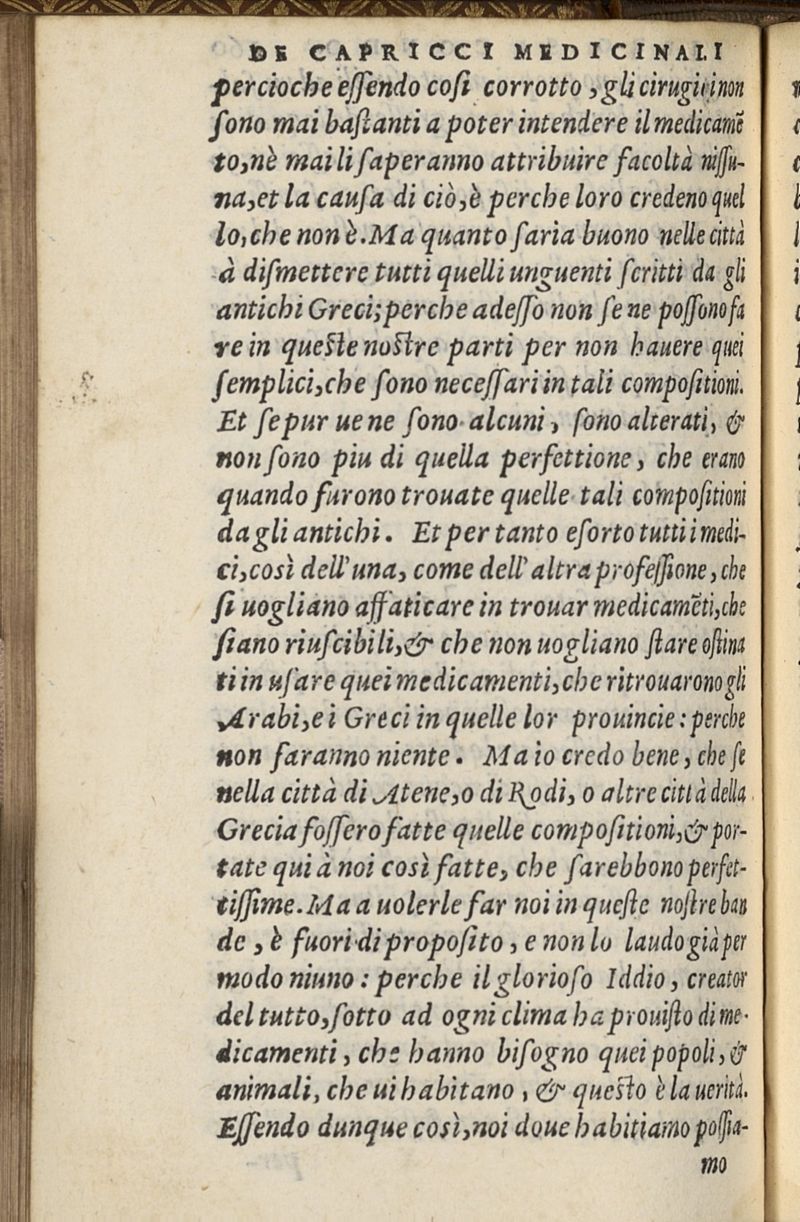 DE CAPRICCI MEDICINALI
percioche eſſendo coſi corrotto, gli cirugici non
ſono mai baſtanti a poter intendere il medicamẽ
to, nè mai li ſaperanno attribuire facoltà niſſu-
na, et la cauſa di ciò, è perche loro credeno quel
lo, che non è. Ma quanto ſaria buono nelle città
à diſmettere tutti quelli unguenti ſcritti da gli
antichi Greci; perche adeſſo non ſe ne poſſono fa
re in queſte noſtre parti per non hauere quei
ſemplici, che ſono neceſſari in tali compoſitioni.
Et ſe pur ue ne ſono alcuni, ſono alterati, &
non ſono piu di quella perfettione, che erano
quando furono trouate quelle tali compoſitioni
da gli antichi. Et per tanto eſorto tutti i medi-
ci, così dell'una, come dell'altra profeſſione, che
ſi uogliano affaticare in trouar medicamẽti, che
ſiano riuſcibili, & che non uogliano ſtare oſtina
ti in uſare quei medicamenti, che ritrouarono gli
Arabi, e i Greci in quelle lor prouincie: perche
non faranno niente. Ma io credo bene, che ſe
nella città di Atene, o di Rodi, o altre città della
Grecia foſſero fatte quelle compoſitioni, & por-
tate qui à noi così fatte, che ſarebbono perfet-
tiſſime. Ma a uolerle far noi in queſte noſtre ban
de, è fuori di propoſito, e non lo laudo già per
modo niuno: perche il glorioſo Iddio, creator
del tutto, ſotto ad ogni clima ha prouiſto di me-
dicamenti, che hanno biſogno quei popoli, &
animali, che ui habitano, & queſto è la uerità.
Eſſendo dunque così, noi doue habitiamo poſſia-
mo